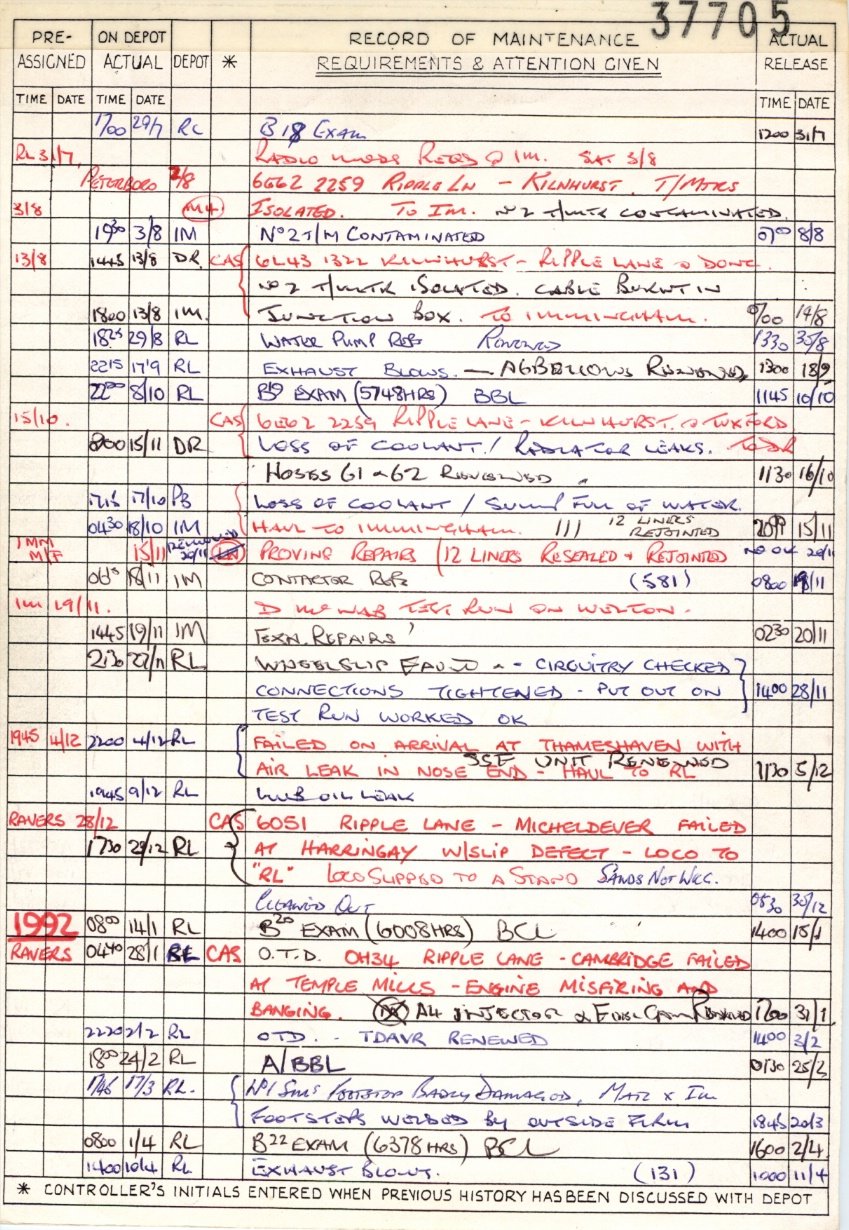 37705
PRE-ASSIGNED ON DEPOT ACTUAL DEPOT * RECORD OF MAINTENANCE REQUIREMENTS & ATTENTION GIVEN ACTUAL RELEASE
TIME DATE TIME DATE TIME DATE
1700 29/7 RL B18 EXAM 1200 31/7
RL 31/7 RADIO MODS REQD @ IM. SAT 3/8
PETERBORO 2/8 6E62 2259 RIPPLE LN - KILNHURST. T/MTRS
3/8 ISOLATED. TO IM. No 2 T/MTR CONTAMINATED.
1930 3/8 IM No 2 T/M CONTAMINATED 0700 8/8
13/8 1445 13/8 DR. CAS 6L43 1322 KILNHURST - RIPPLE LANE @ DONC.
No 2 T/MTR ISOLATED. CABLE BURNT IN
1800 13/8 IM. JUNCTION BOX. TO IMMINGHAM. 0700 14/8
1825 29/8 RL WATER PUMP REPS RENEWED 1330 30/8
2215 17/9 RL EXHAUST BLOWS. - A6 BELLOWS RENEWED 1300 18/9
2200 8/10 RL B19 EXAM (5748HRS) BBL 1145 10/10
15/10. CAS 6E62 2259 RIPPLE LANE - KILNHURST. @ TUXFORD
0800 15/11 DR LOSS OF COOLANT / RADIATOR LEAKS. TO DR
HOSES 61 & 62 RENEWED 1130 16/10
1715 17/10 PB LOSS OF COOLANT / SUMP FULL OF WATER.
0430 18/10 IM HAUL TO IMMINGHAM. 12 LINERS REJOINTED 15/11
IMM M/F 15/11 20/11 PROVING REPAIRS (12 LINERS RESEALED & REJOINTED 20/11
0615 18/11 IM CONTACTOR REPS (581) 0800 18/11
IM 19/11. TEST RUN ON WELTON.
1445 19/11 IM EXN. REPAIRS 0230 20/11
2130 27/11 RL WHEELSLIP FAULT - CIRCUITRY CHECKED
CONNECTIONS TIGHTENED - PUT OUT ON 1400 28/11
TEST RUN WORKED OK
1945 4/12 2200 4/12 RL FAILED ON ARRIVAL AT THAMESHAVEN WITH
SSF UNIT RENEWED
AIR LEAK IN NOSE END - HAUL TO RL 1130 5/12
1945 9/12 RL LUB OIL LEAK
RAVERS 28/12 CAS 6051 RIPPLE LANE - MICHELDEVER FAILED
1730 29/12 RL AT HARRINGAY W/SLIP DEFECT - LOCO TO
"RL" LOCO SLIPPED TO A STAND SANDS NOT WKG.
CLEANED OUT 0530 30/12
1992 0800 14/1 RL B20 EXAM (6008HRS) BCL 1400 15/1
RAVERS 0440 28/1 RL CAS O.T.D. 0H34 RIPPLE LANE - CAMBRIDGE FAILED
AT TEMPLE MILLS - ENGINE MISFIRING AND
BANGING. A4 INJECTOR & RENEWED 1700 31/1
2220 2/2 RL OTD. - TDAVR RENEWED 1400 3/2
1800 24/2 RL A/BBL 0130 25/2
1746 17/3 RL. No 1 FOOTSTEP BADLY DAMAGED, MATL X IM
FOOTSTEPS WELDED BY OUTSIDE FIRM 1845 20/3
0800 1/4 RL B22 EXAM (6378HRS) BCL 1600 2/4
1400 10/4 RL EXHAUST BLOWS. (131) 1000 11/4
* CONTROLLER'S INITIALS ENTERED WHEN PREVIOUS HISTORY HAS BEEN DISCUSSED WITH DEPOT